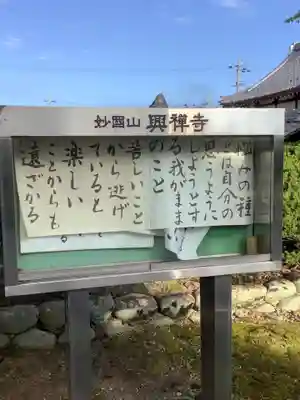 妙国山 興禅寺
悩みの種
とは自分の
思うように
しようとす
る我がまま
のこと
苦しいこと
から逃げ
ていると
楽しい
ことからも
遠ざかる